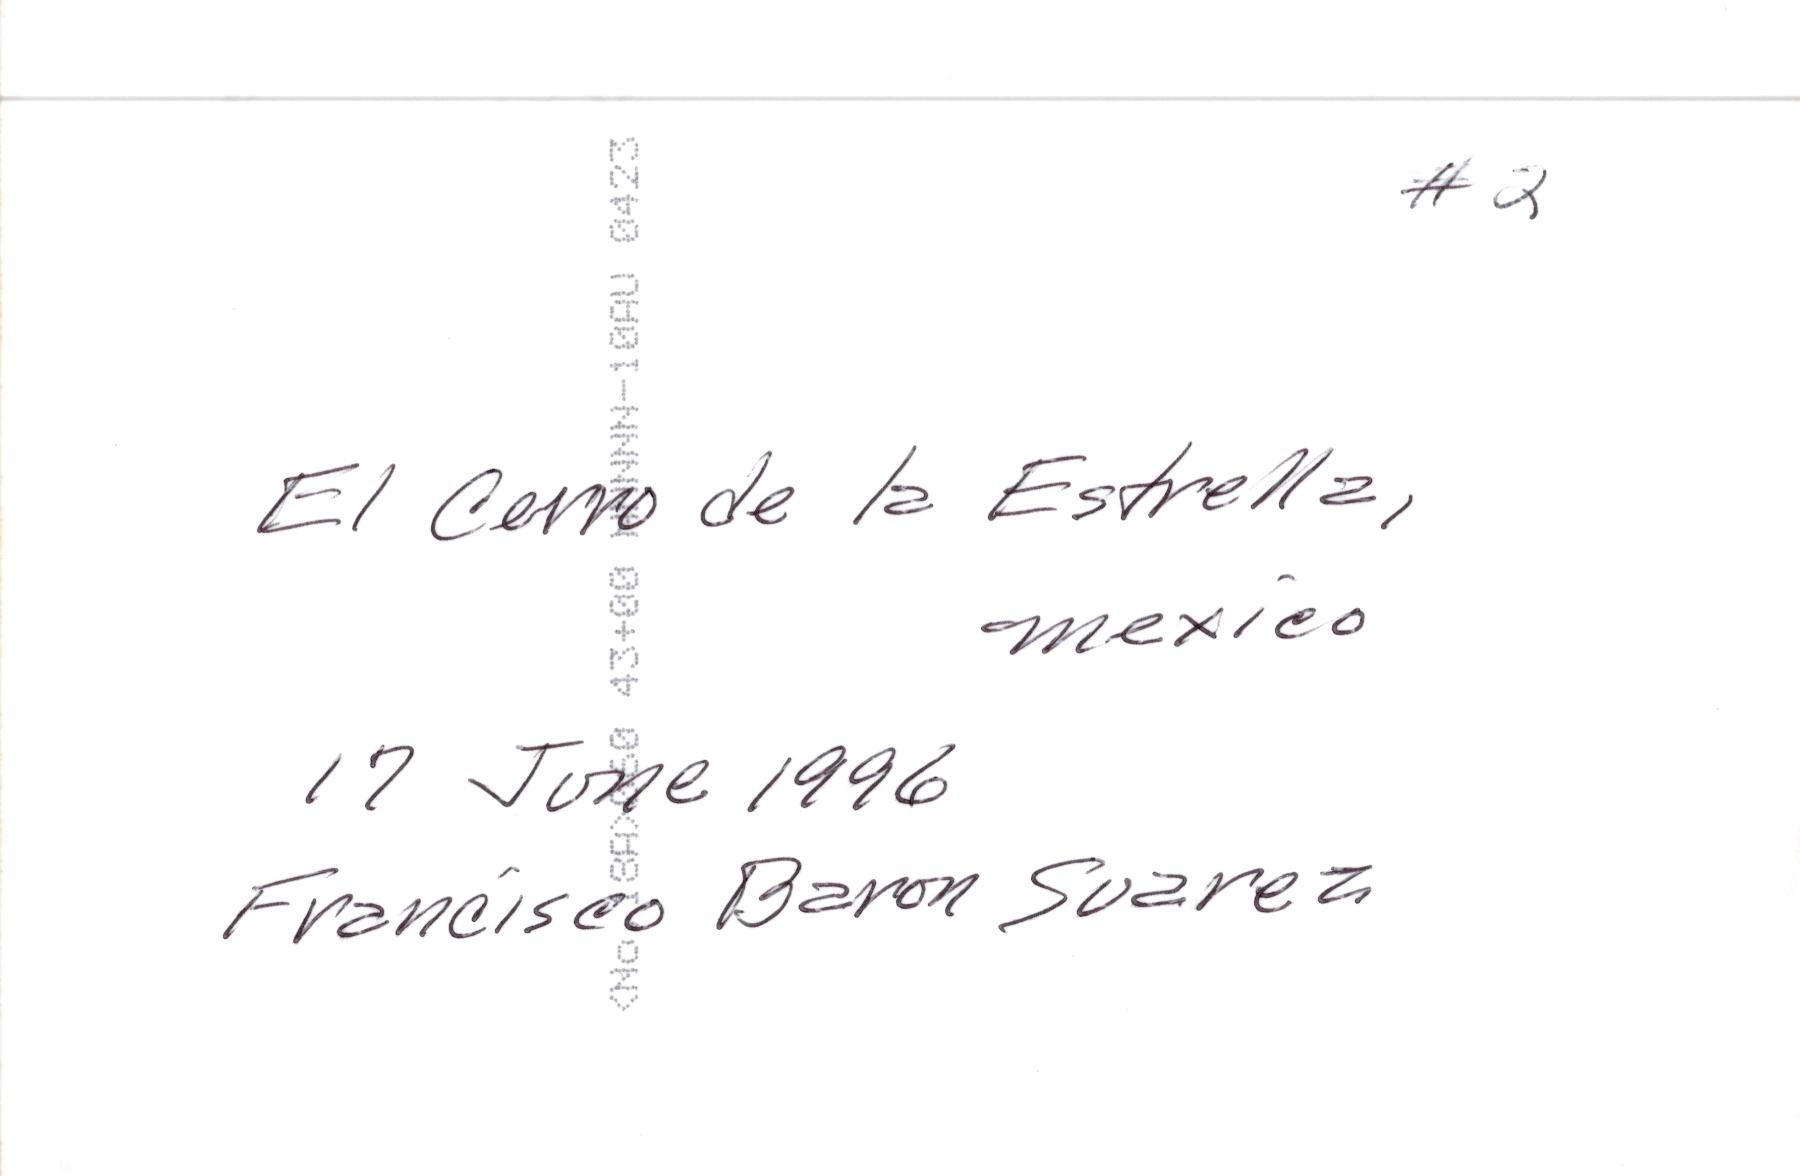 # 2
El Cerro de la Estrella,
mexico
17 June 1996
Francisco Baron Suarez
43+00 NNNN-10AU 0423